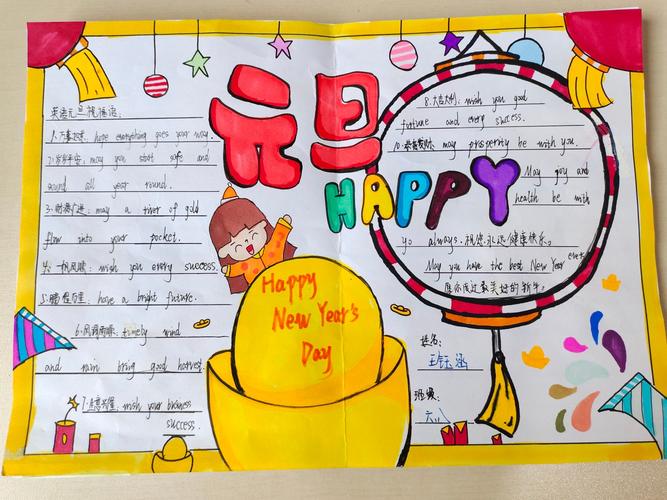 元旦
HAPPY
英语元旦祝福语:
1.万事如意: hope everything goes your way.
2.岁岁平安: may you start safe and
sound all year round.
3.财源广进: may a river of gold
flow into your pocket.
4.一帆风顺: wish you every success.
5.鹏程万里: have a bright future.
6.风调雨顺: timely wind
and rain bring good harvest.
7.生意兴隆: wish your business
success.
Happy
New Year's
Day
8.大吉大利: wish you good
fortune and every success.
10.恭喜发财: may prosperity be with you.
May goy and
health be with
yo always.祝您永远健康快乐。
May you have the best New Year ever.
愿你度过最美好的新年。
姓名:
王钰涵
班级:
六八